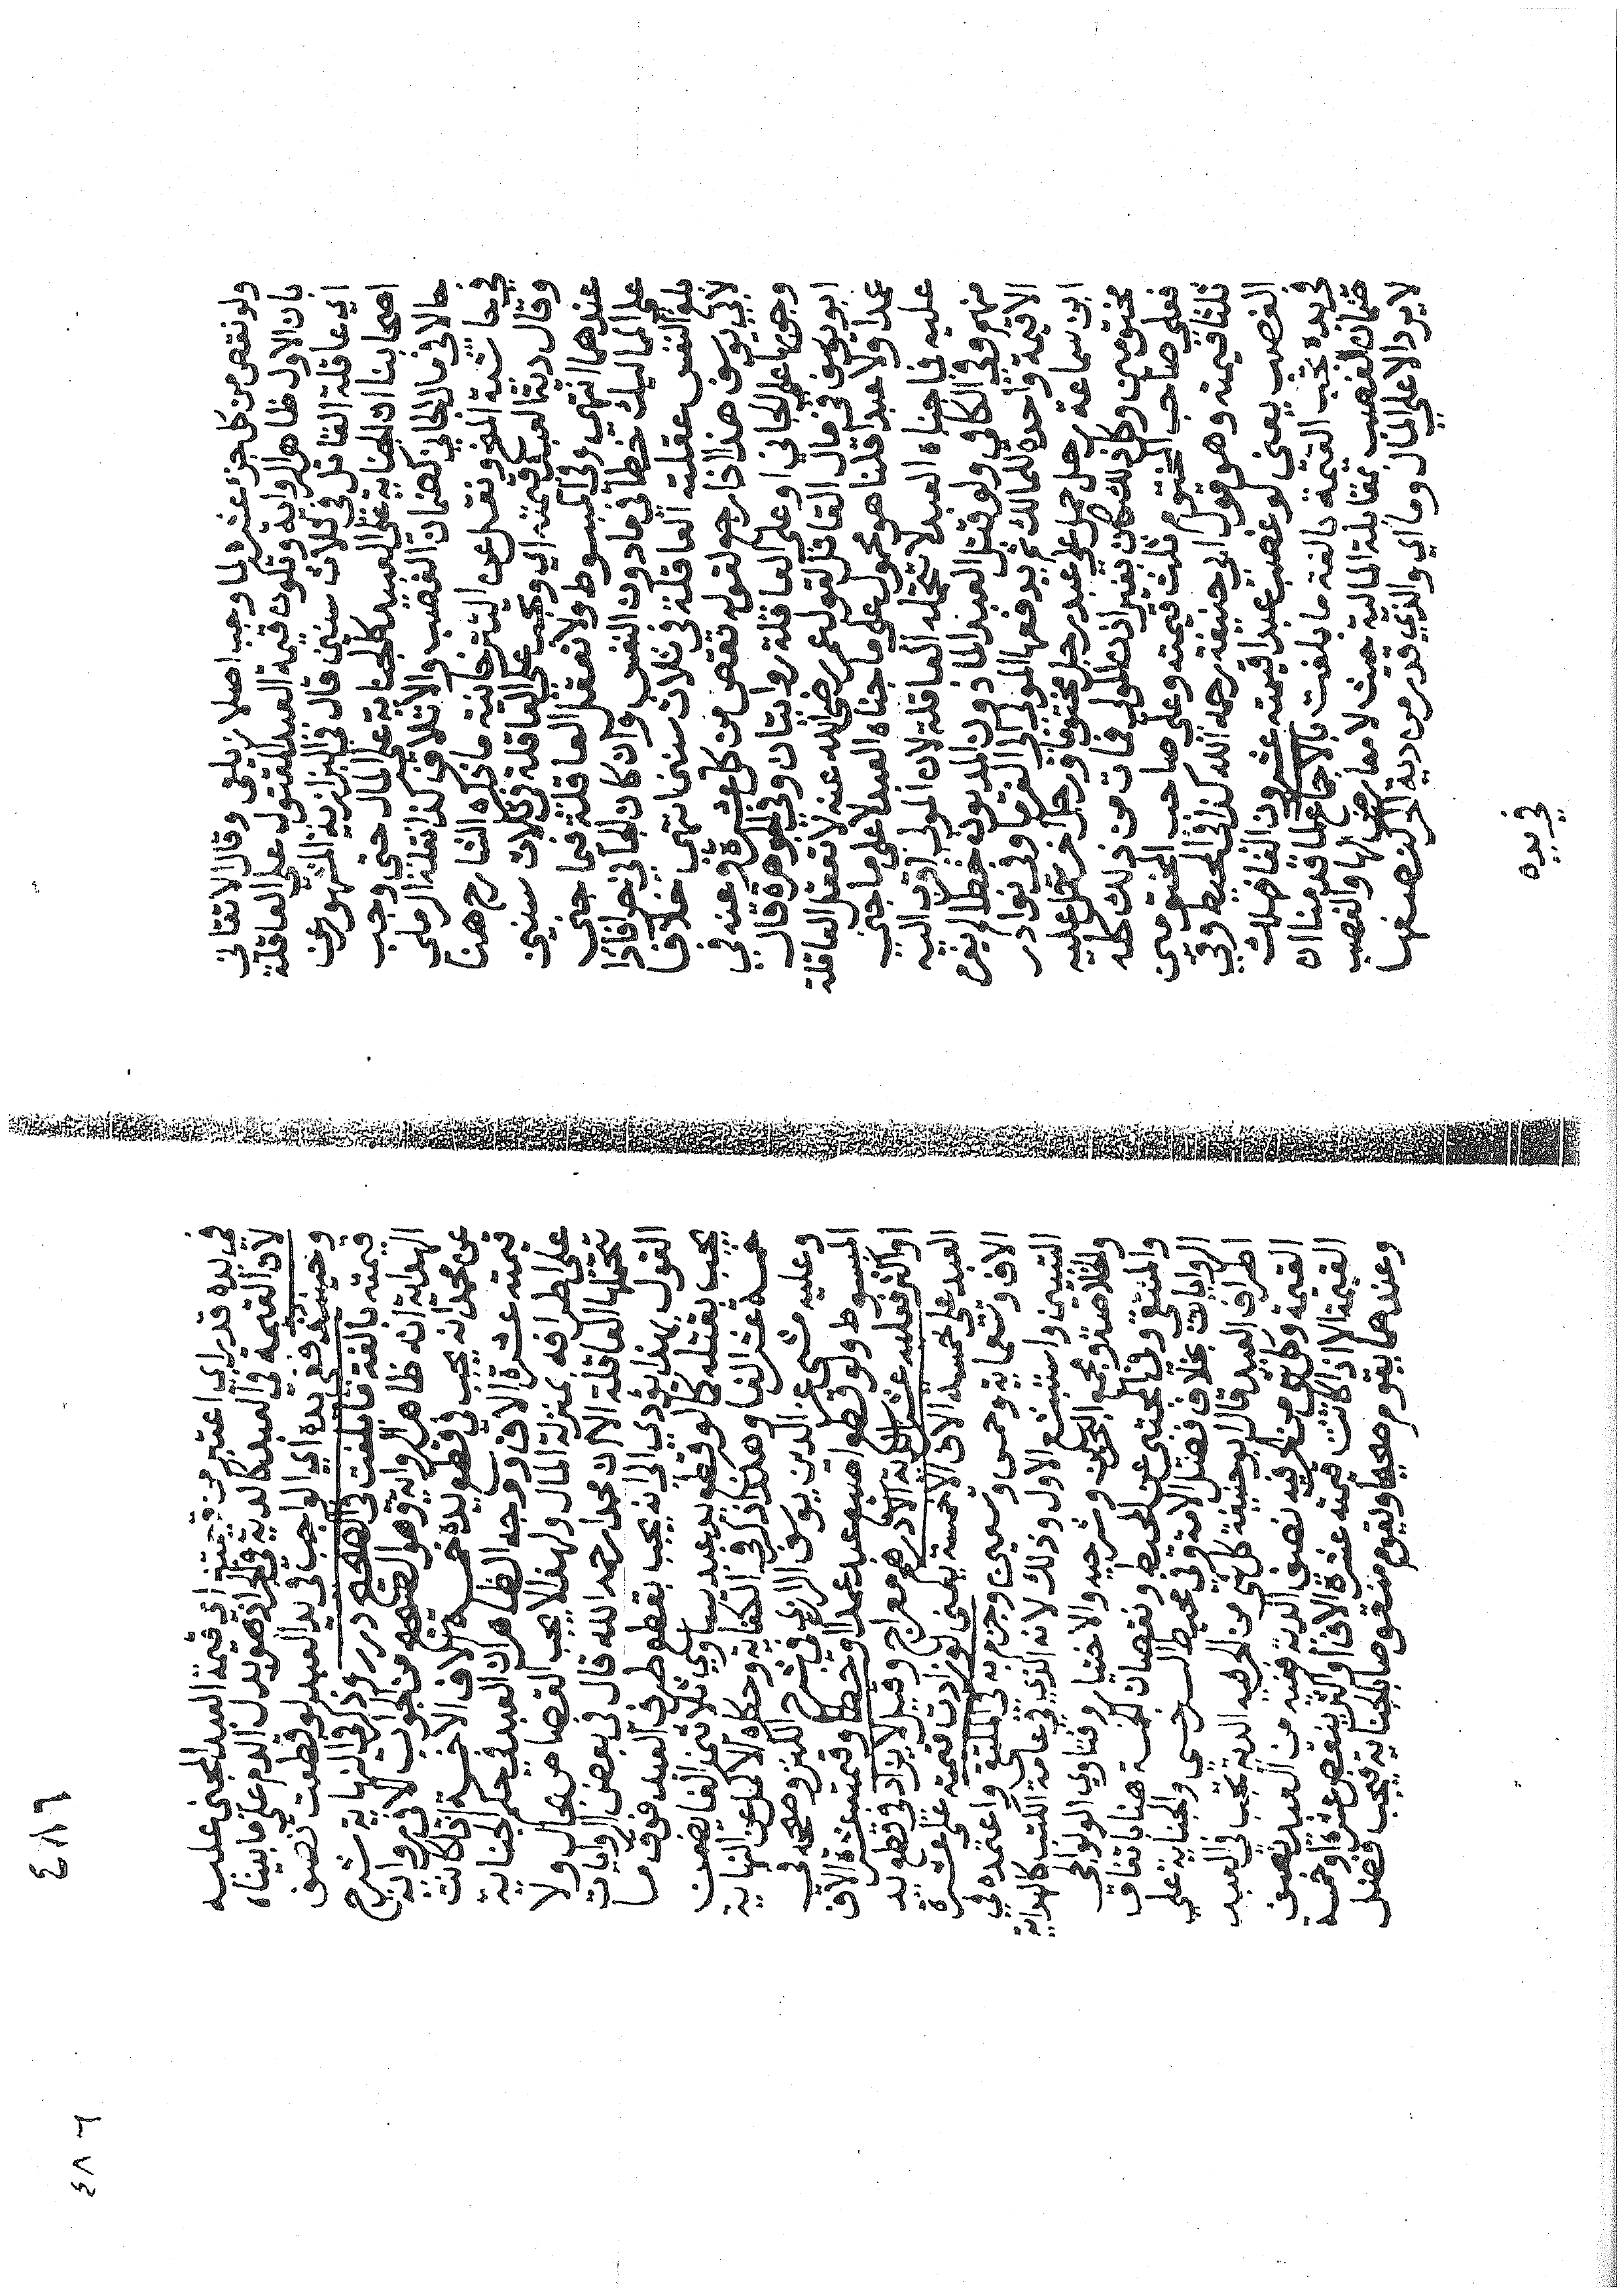 ولو نقص من كل جزء عشر لما وجب اصلا زيلعي وقال الاتقاني
بان الاول ظاهر الرواية وتكون قيمة العبد المقتول على العاقلة
اي عاقلة القاتل في ثلاث سنين قال في البزازية المشهور عن
اصحابنا ان الجناية على العبيد كالجناية على المال حتى وجب
حالا في مال الجاني كضمان الغصب والاتلاف كذا نقله الرملي
في حاشية المنح ونقل عن التترخانية ما ذكره الشارح هنا
وقال دية العبد قيمته اي وتجب على العاقلة في ثلاث سنين
عندهما انتهى وفي المبسوط ولا تعقل العاقلة فيما جنى
على المماليك خطأ في ما دون النفس وان كان الجاني حرا فاذا
بلغ النفس عقلته العاقلة في ثلاث سنين انتهى خلافا
لابي يوسف هذا خارج لقوله نقص من كل عشرة وعنه في
وجوبها على الجاني او على العاقلة روايتان وفي الجوهرة قال
ابو يوسف في مال القاتل لقول عمر رضي الله عنه لا تعقل العاقلة
عمدا ولا عبدا قلنا هو محمول على ما جناه العبد لا على ما جني
عليه فما جناه العبد لا تتحمله العاقلة لان المولى اقرب اليه
منهم وفي الكافي ولو قتل العبد الماذون المديون خطأ لم يغرم
الا قيمة واحدة للمالك ثم يدفعها المولى الى الغرما وفي نوادر
ابن سماعة رجل حمل على عبد رجل مختوما ورجل اخر حمل عليه
مختومين وكل ذلك كان بغير اذن المولى فمات من ذلك كله
فعلى صاحب المختوم ثلث قيمته وعلى صاحب المختومين
ثلثا قيمته وهو قول ابي حنيفة رحمه الله كذا في المحيط وفي
الغصب يعني لو غصب عبدا قيمته عشرون الفا فهلك
في يده تجب القيمة بالغة ما بلغت بالاجماع لما قدمنا ان
ضمان الغصب بمقابلة المالية حيث لا معارض لها والغصب
لا يرد الا على المال وما اي والذي قدر من دية الحر كنصفها
في يده
٤٨٦
في يده قدر اي اعتبر من قيمته اي قيمة العبد المجني عليه
لان القيمة في العبد كالدية في الحر اذ هو بدل الدم على ما بيناه
وحينئذ ففي يده اي الواجب في يد العبد لو قطعت نصف
قيمته بالغة ما بلغت في الصحيح درر وذكر في النهاية شرح
الهداية انه ظاهر الرواية وهو الصحيح من الجواب لا في رواية
عن محمد انه يجب في قطع يده خمسة الاف الا خمسة اذا كانت
قيمته عشرة الاف ووجه الظاهر ان العبد في حكم الجناية
على اطرافه بمنزلة المال ولهذا لا يجب القصاص بحال ولا
تتحملها العاقلة الا ان محمدا رحمه الله قال في بعض الروايات
القول بهذا يؤدي الى انه يجب بقطع طرف العبد فوق ما
يجب بقتله كما لو قطع يد عبد يساوي ثلاثين الفا يضمن
خمسة عشر الفا وهكذا ذكر في الكفاية وحكاه الاكمل عن النهاية
وعليه مشى عز الدين يوسف الرازي في شرح الكنز وصححه في
المبسوط ولو قطع اصبع عبد عمدا او خطأ وقيمته عشرة الاف
او اكثر فعليه عشر الدية الا درهم معراج وقيل لا يزاد في قطع يد
العبد على خمسة الاف الا خمسة يعني لو زادت قيمته على عشرة
الاف وتسعماية وخمس وتسعين وجزم به في الملتقى واعتمده في
التبيين واستبشع الاول وذلك لانه الذي في عامة الكتب كالهداية
والخلاصة ومجمع البحرين وشرحيه والاختيار وفتاوى الولوالجي
والمنتقى وفي المجتبى عن المحيط ونقصان الخمسة هنا باتفاق
الروايات بخلاف فصل الامة وفي محيط السرخسي والجناية على
اطراف العبد قال ابو حنيفة كل شي من الحر فيه الدية تجب في العبد
القيمة وكل شي من الحر فيه نصف الدية ففيه من العبد نصف
القيمة الا اذا كانت قيمته عشرة الاف او اكثر ينقص عشرة او خمسة
وعندهما يقوم صحيحا ويقوم منقوصا بالجناية فيجب فضل
٤٨٦